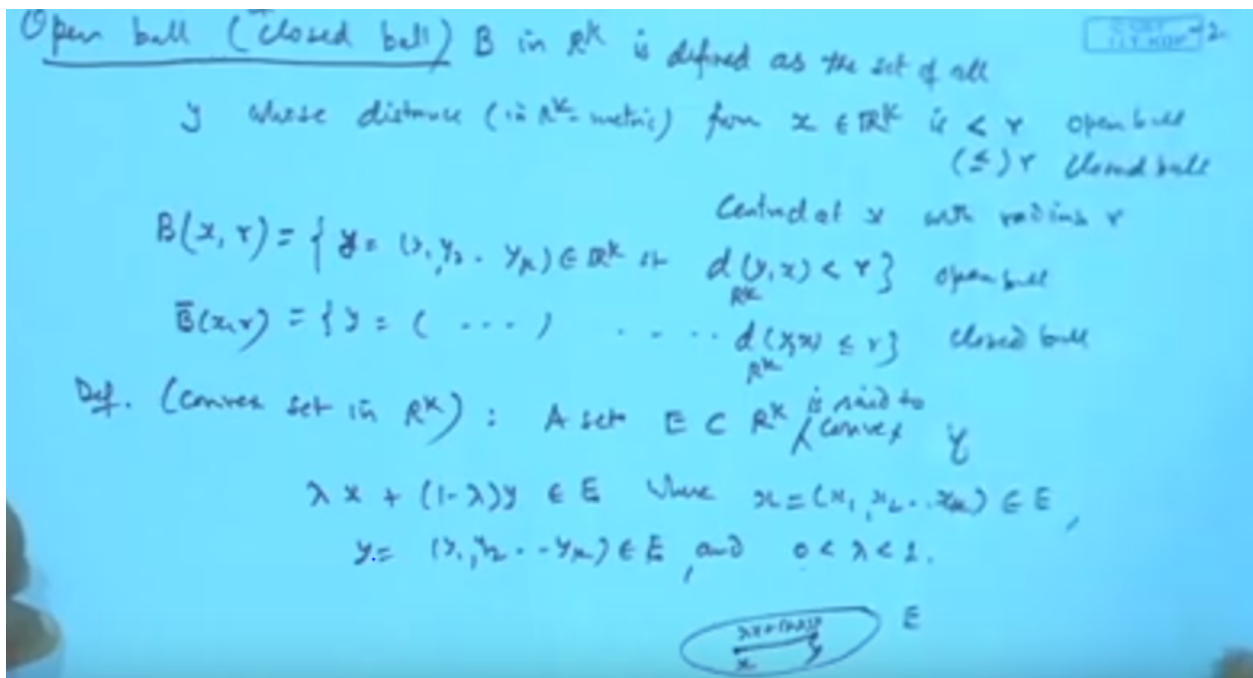 Open ball (closed ball) B in Rᵏ is defined as the set of all
y whose distance (in Rᵏ-metric) from x ∈ Rᵏ is < r open ball
(≤) r closed ball
Centred at x with radius r
B(x, r) = { y = (y₁, y₂ .. yₖ) ∈ Rᵏ st d(y, x) < r } open ball
Rᵏ
B̄(x, r) = { y = ( .... ) ..... d(y, x) ≤ r } closed ball
Rᵏ
Def. (convex set in Rᵏ) : A set E ⊂ Rᵏ is said to convex if
λx + (1-λ)y ∈ E where x = (x₁, x₂ .. xₖ) ∈ E,
y = (y₁, y₂ .. yₖ) ∈ E, and 0 < λ < 1.
E
λx+(1-λ)y
x y